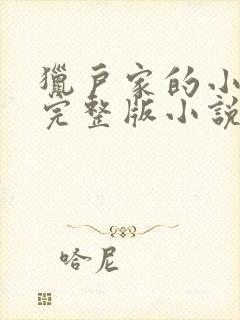 獵戶家的小
完整版小說
哈尼